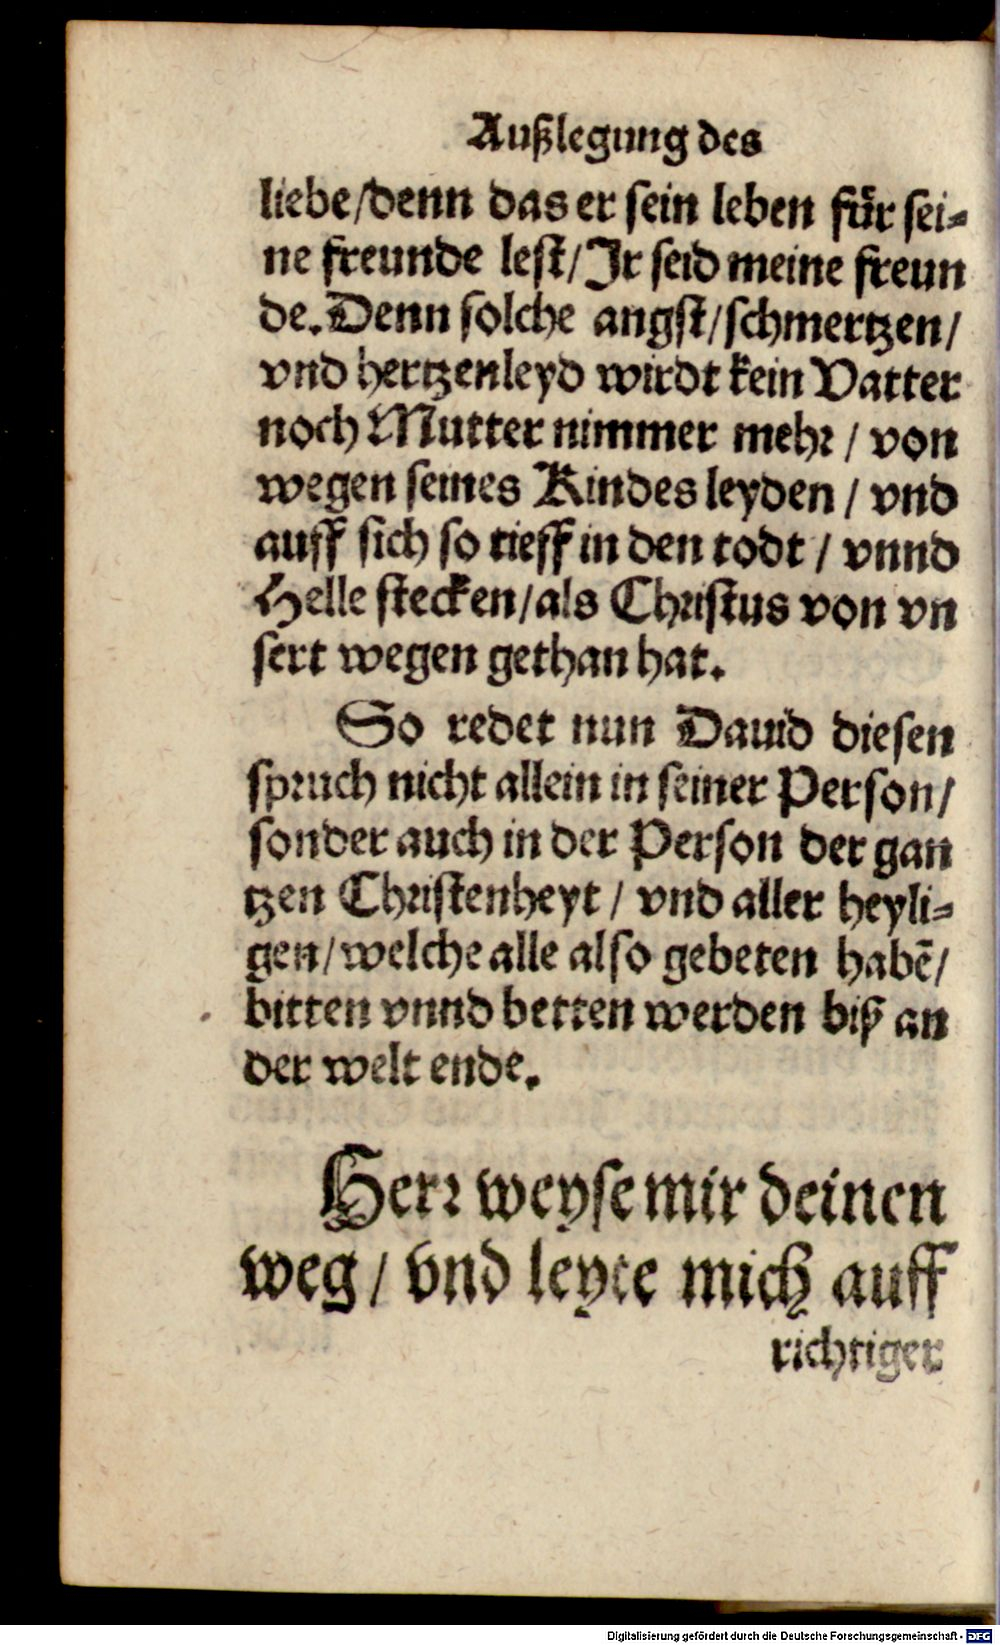 Außlegung des
liebe/denn das er sein leben für sei-
ne freunde lest/Ir seid meine freun
de. Denn solche angst/schmertzen/
vnd hertzenleyd wirdt kein Vatter
noch Mutter nimmer mehr / von
wegen seines Kindes leyden / vnd
auff sich so tieff in den todt / vnnd
Helle stecken/als Christus von vn
sert wegen gethan hat.
So redet nun Dauid diesen
spruch nicht allein in seiner Person/
sonder auch in der Person der gan
tzen Christenheyt / vnd aller heyli-
gen/welche alle also gebeten habē/
bitten vnnd betten werden biß an
der welt ende.
Herr weyse mir deinen
weg / vnd leyte mich auff
richtiger
Digitalisierung gefördert durch die Deutsche Forschungsgemeinschaft - DFG